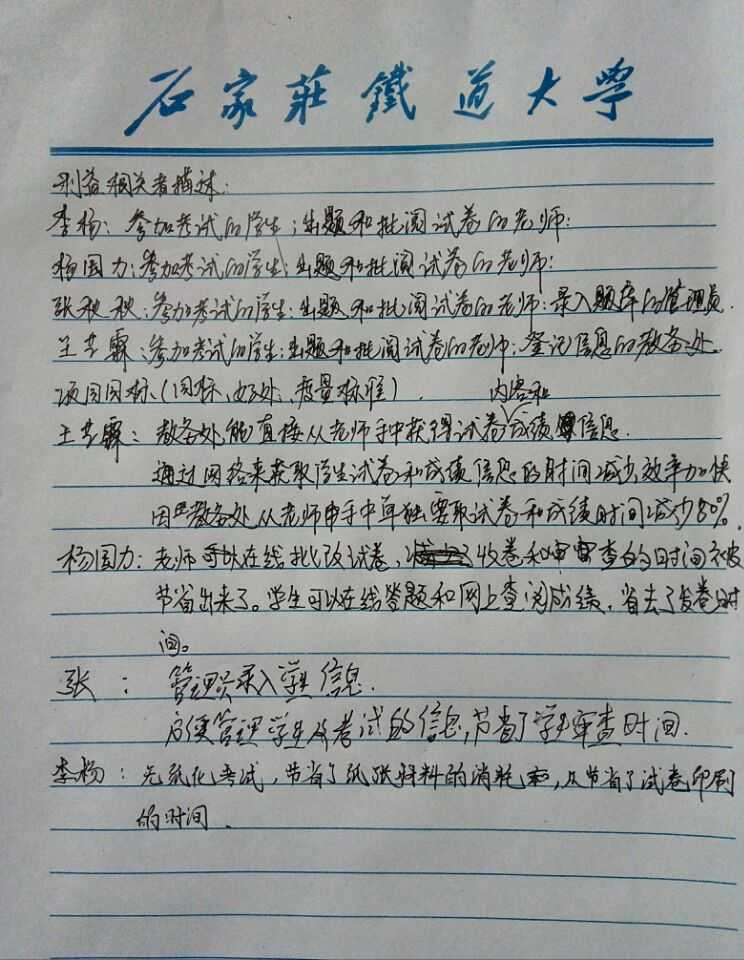 石家莊鐵道大學
利益相关者描述:
李杨:参加考试的学生;出题和批阅试卷的老师:
杨国力:参加考试的学生:出题和批阅试卷的老师:
张秋秋:参加考试的学生:出题和批阅试卷的老师:录入题库的管理员.
王芝霖:参加考试的学生:出题和批阅试卷的老师:登记信息的教务处.
项目目标(目标,好处,度量标准).
王芝霖:教务处能直接从老师手中获得试卷内容和成绩信息.
通过网络来获取学生试卷和成绩信息的时间减少,效率加快
因教务处从老师手中单独要取试卷和成绩时间减少80%.
杨国力:老师可以在线批改试卷,收卷和审查的时间被
节省出来了。学生可以在线答题和网上查阅成绩,省去了发卷时
间。
张:管理员录入学生信息.
方便管理学生及考试的信息,节省了学生审查时间.
李杨:无纸化考试,节省了纸张材料的消耗率,且节省了试卷印刷
的时间.